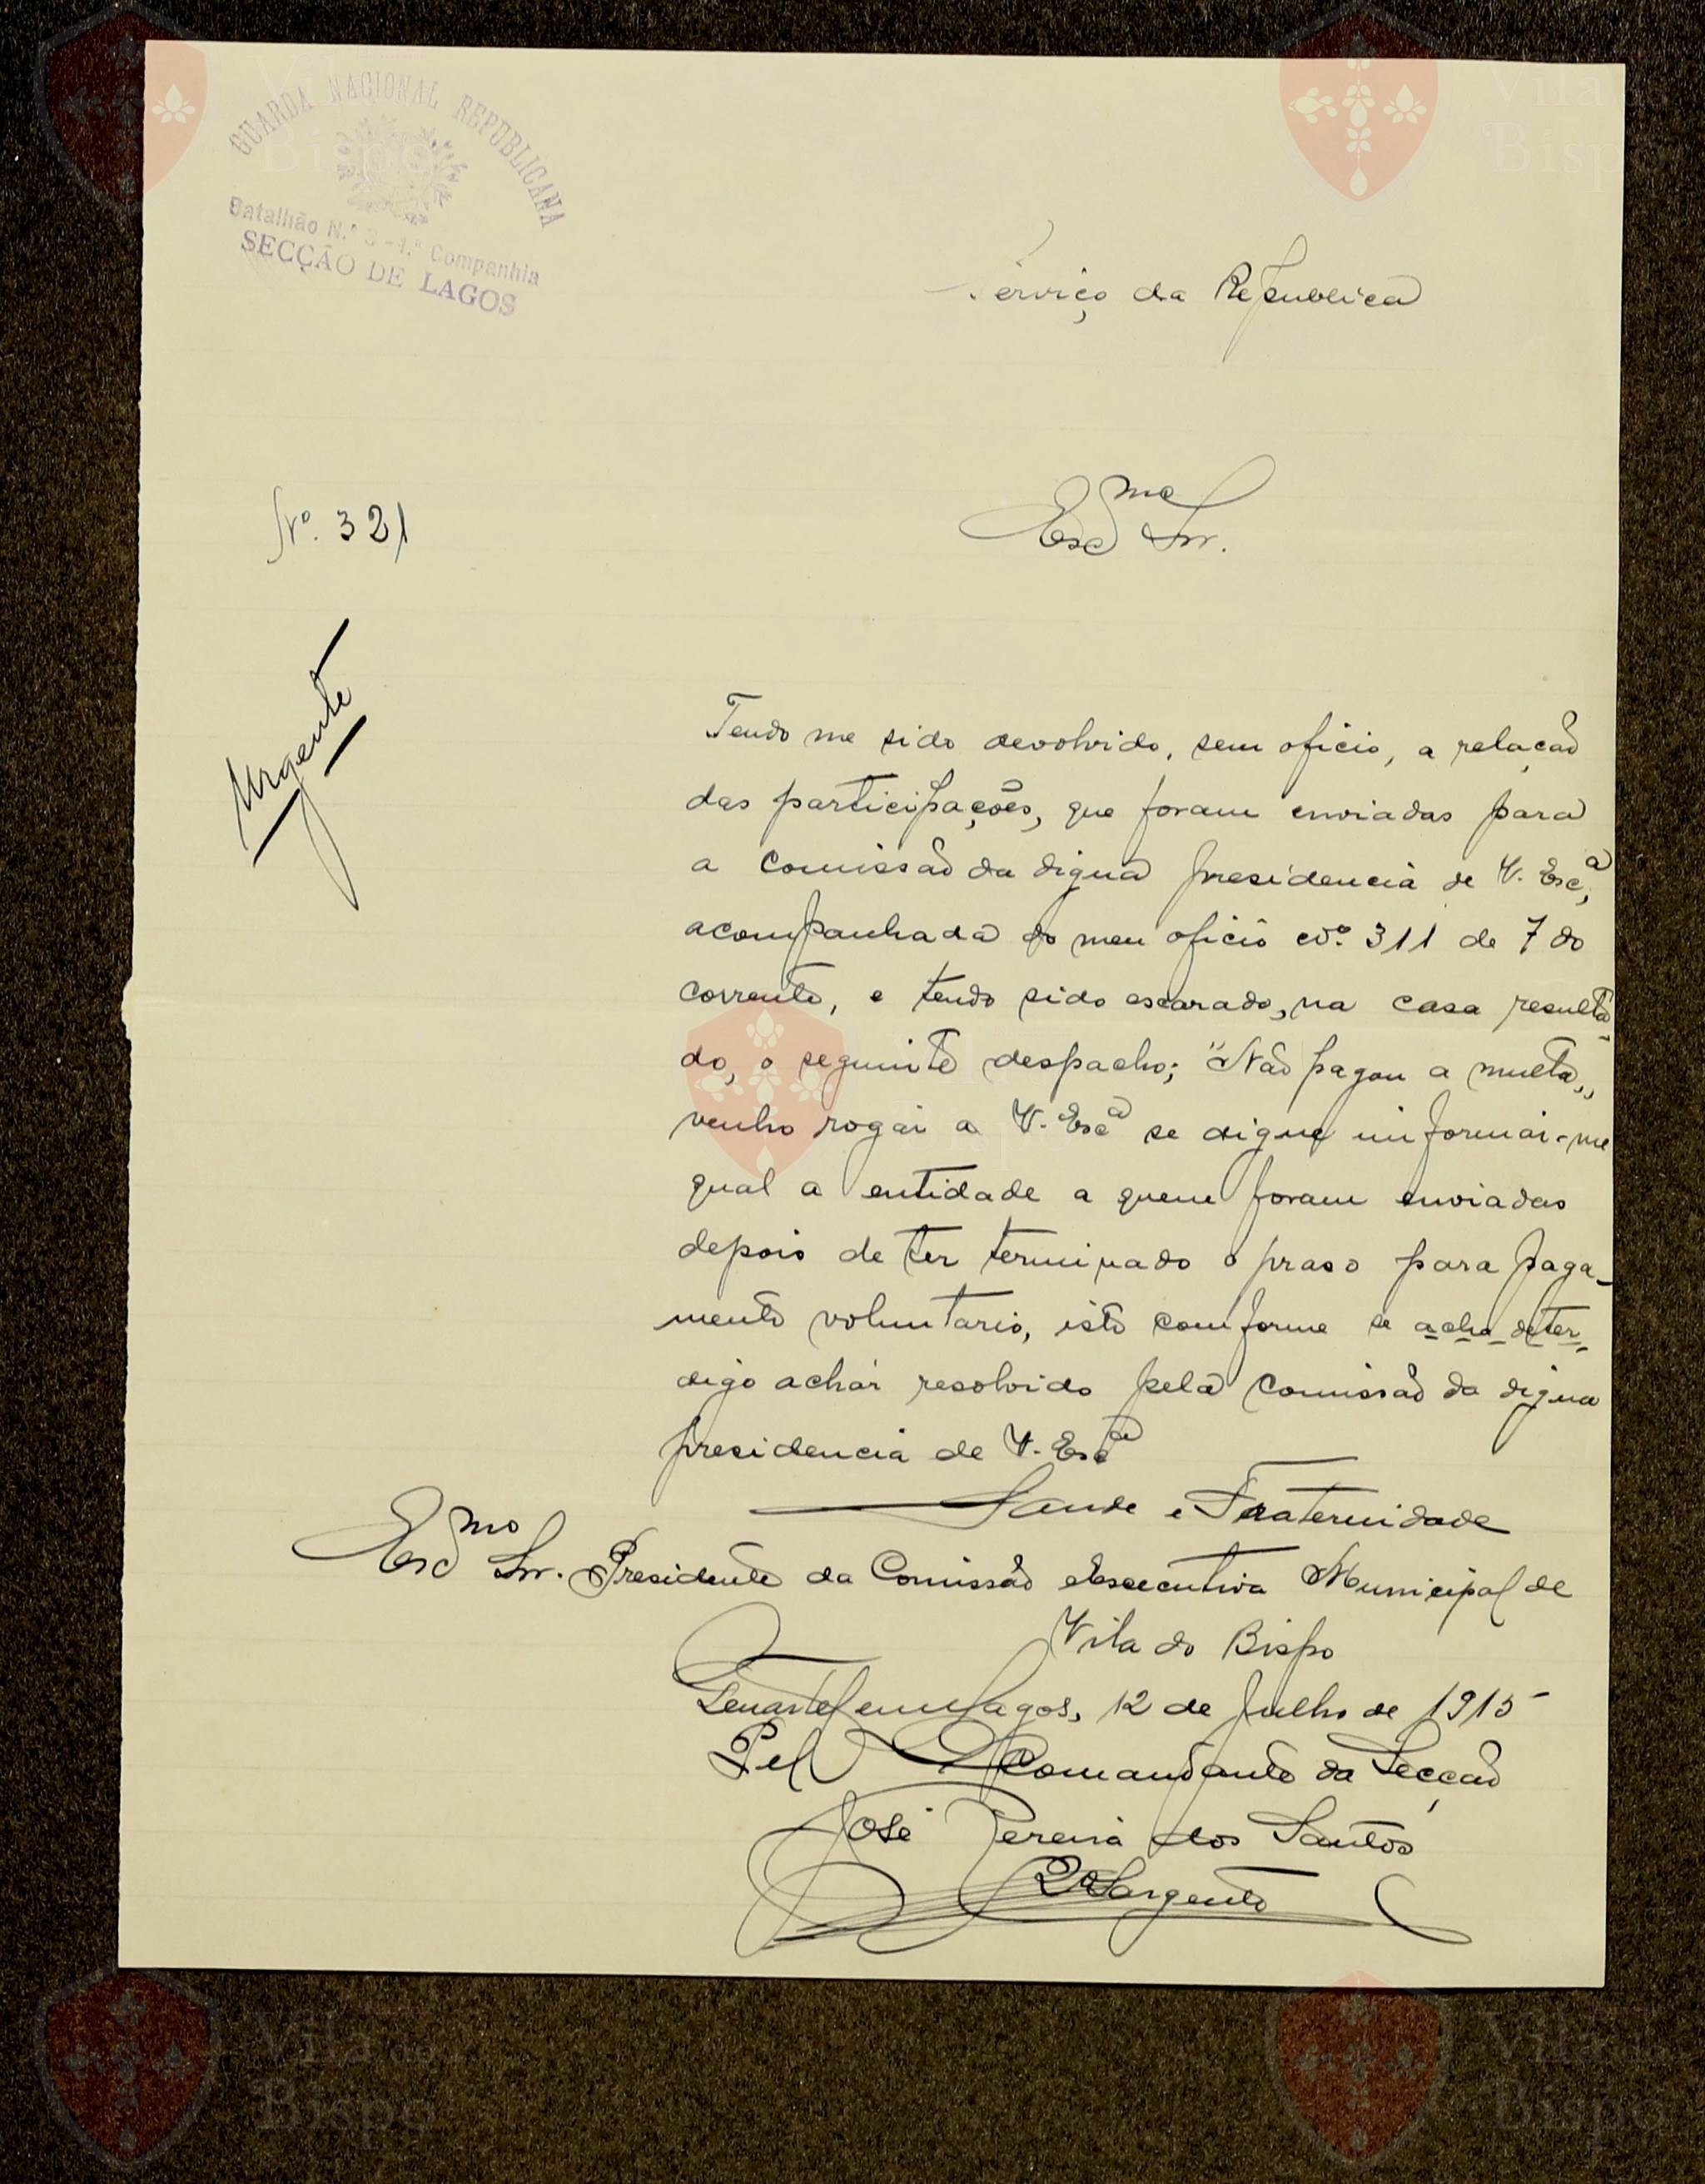 GUARDA NACIONAL REPUBLICANA
Batalhão N.º 3 - 1.ª Companhia
SECÇÃO DE LAGOS
Serviço da Republica
Exmo Snr.
Nº. 321
Urgente
Tendo me sido devolvido, sem oficio, a relação
das participações, que foram enviadas para
a comissão da digna presidencia de V. Exca,
acompanhada do meu oficio Nº. 311 de 7 do
corrente, e tendo sido escarado, na casa resulta-
do, o seguinte despacho; "Não pagou a multa,,
venho rogar a V. Exca se digne informar-me
qual a entidade a quem foram enviadas
depois de ter terminado o praso para paga-
mento voluntario, isto comforme se acha deter-
digo achar resolvido pela comissão da digna
presidencia de V. Exca
Saude e Fraternidade
Exmo Snr. Presidente da Comissão Executiva Municipal de
Vila do Bispo
Quartel em Lagos, 12 de Julho de 1915
Pelo Comandante da Secção
José Pereira dos Santos
2º Sargento
Vila do
Bispo